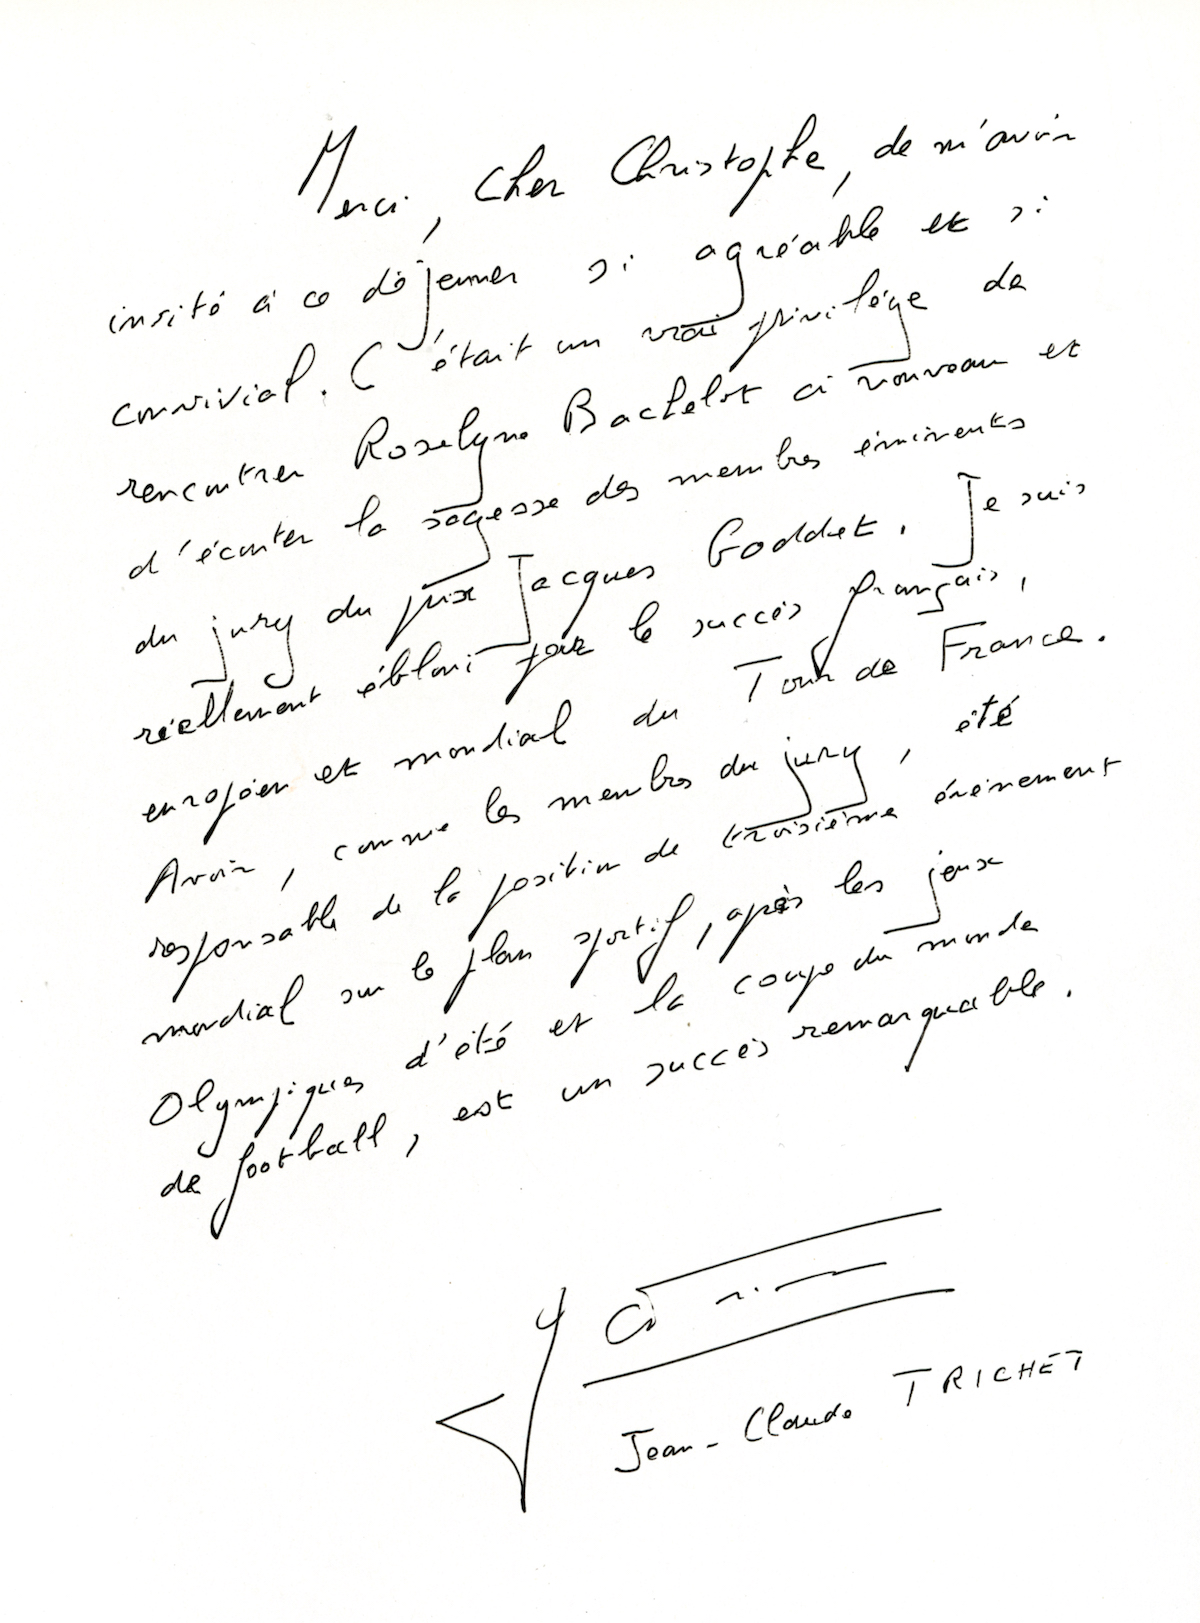 Merci, cher Christophe, de m'avoir
invité à ce déjeuner si agréable et si
convivial. C'était un vrai privilège de
rencontrer Roselyne Bachelot à nouveau et
d'écouter la sagesse des membres éminents
du jury du prix Jacques Goddet. Je suis
réellement ébloui par le succès français,
européen et mondial du Tour de France.
Avoir, comme les membres du jury, été
responsable de la position de troisième événement
mondial sur le plan sportif, après les jeux
Olympiques d'été et la coupe du monde
de football, est un succès remarquable.
Jean-Claude TRICHET